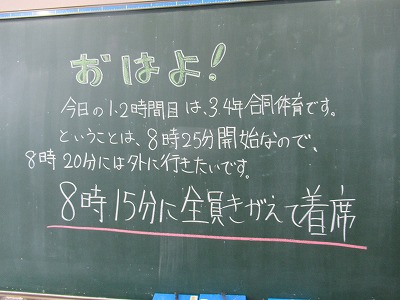 おはよ！
今日の1.2時間目は、3.4年合同体育です。
ということは、8時25分開始なので、
8時20分には外に行きたいです。
8時15分に全員きがえて着席